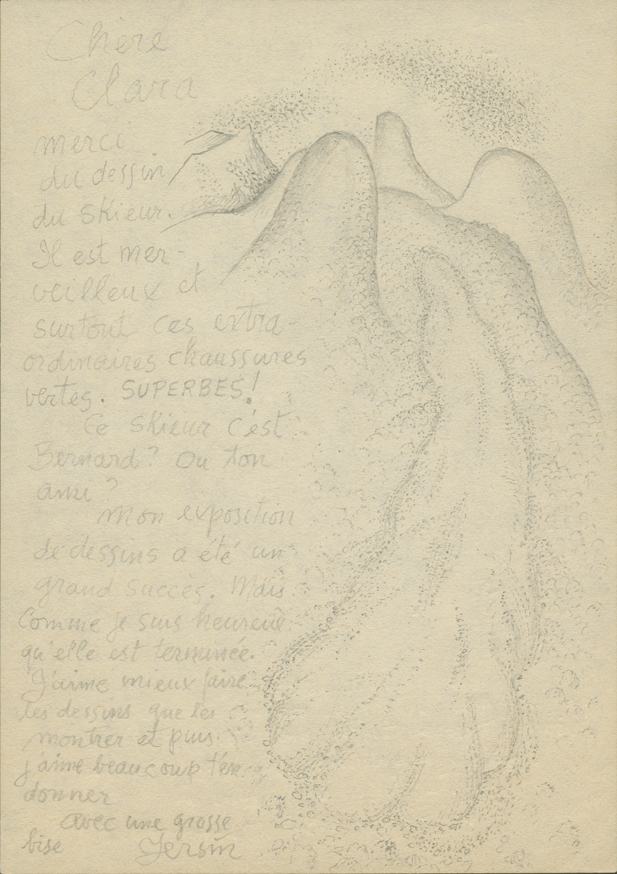 Chère
Clara
merci
du dessin
du skieur.
Il est mer-
veilleux et
surtout ces extra-
ordinaires chaussures
vertes. SUPERBES!
Ce skieur c'est
Bernard? Ou ton
ami?
Mon exposition
de dessins a été un
grand succès. Mais
comme je suis heureux
qu'elle est terminée.
J'aime mieux faire
les dessins que les
montrer et puis
j'aime beaucoup t'en
donner
avec une grosse
bise